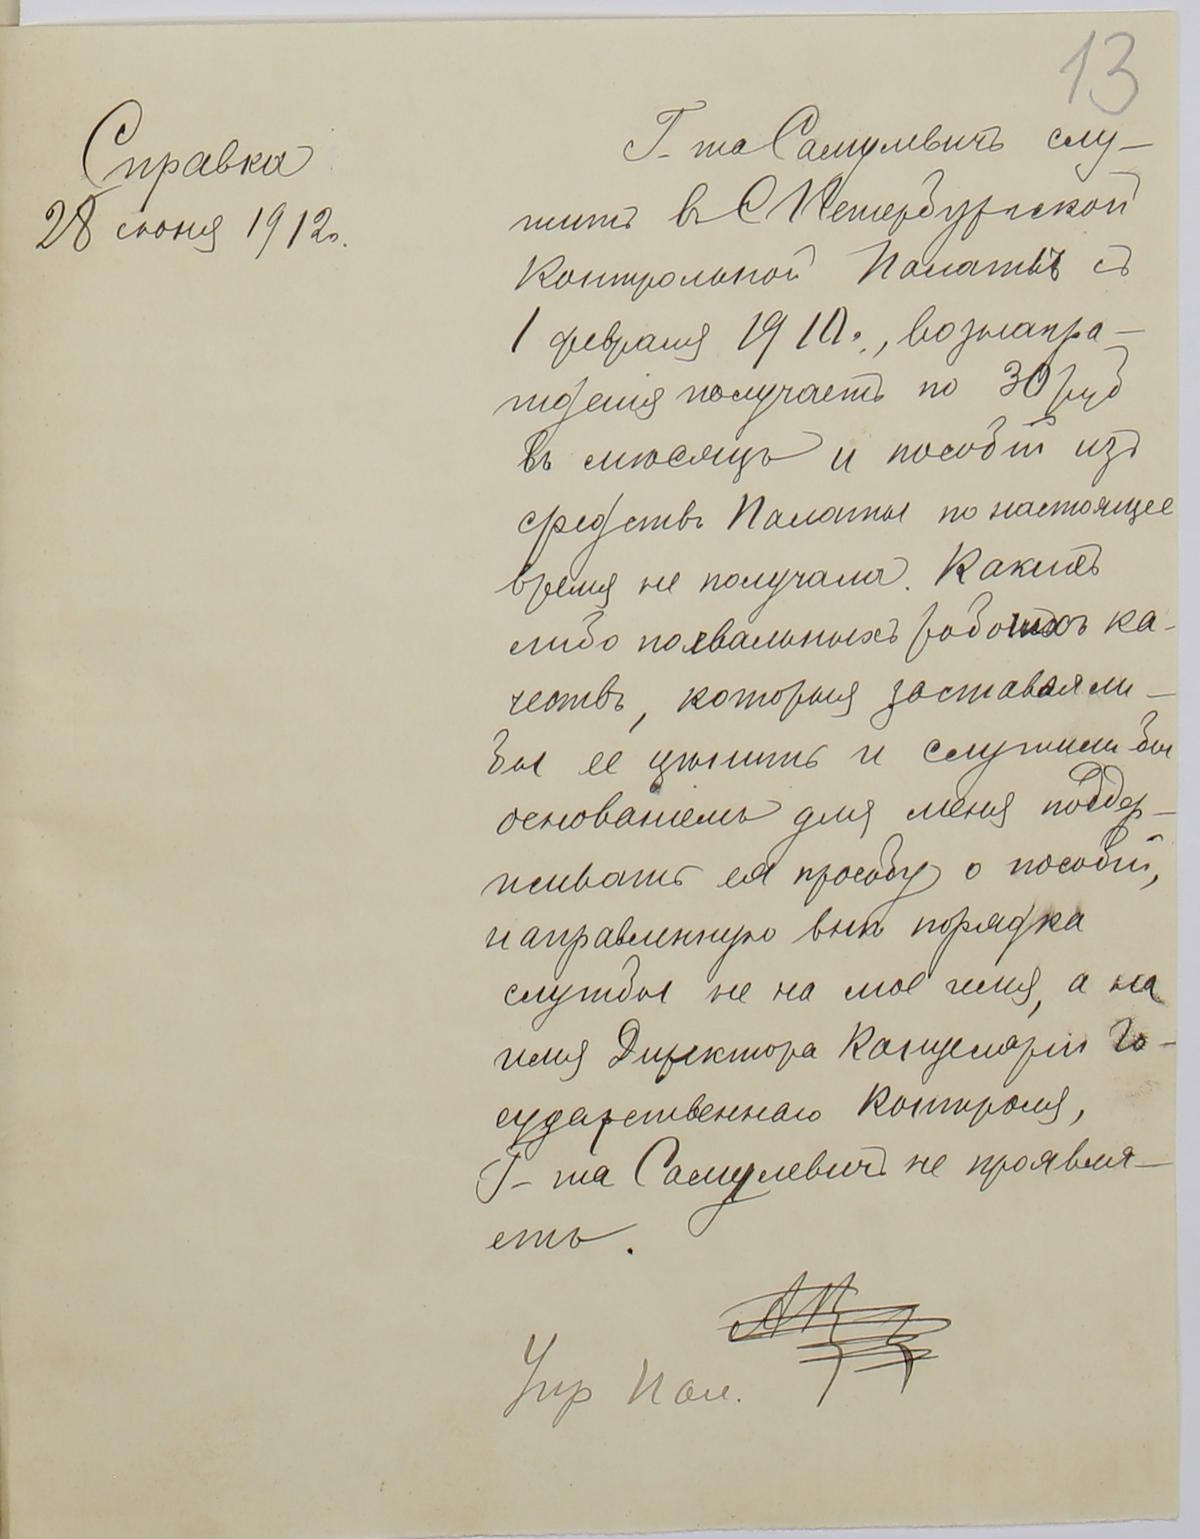 13
Справка
28 июня 1912г.
Г-жа Самулевичъ слу-
житъ въ С Петербургской
Контрольной Палатѣ съ
1 февраля 1910г., вознагра-
жденія получаетъ по 30 руб
въ мѣсяцъ и пособій изъ
средствъ Палаты по настоящее
время не получала. Какихъ
либо похвальныхъ рабочихъ ка-
чествъ, которыя заставляли-
бы ее цѣнить и служили бы
основаніемъ для меня поддер-
живать ея просьбу о пособіи,
направленную внѣ порядка
службы не на мое имя, а на
имя Директора Канцеляріи Го-
сударственнаго Контроля,
Г-жа Самулевичъ не проявля-
етъ.
Упр Пал.